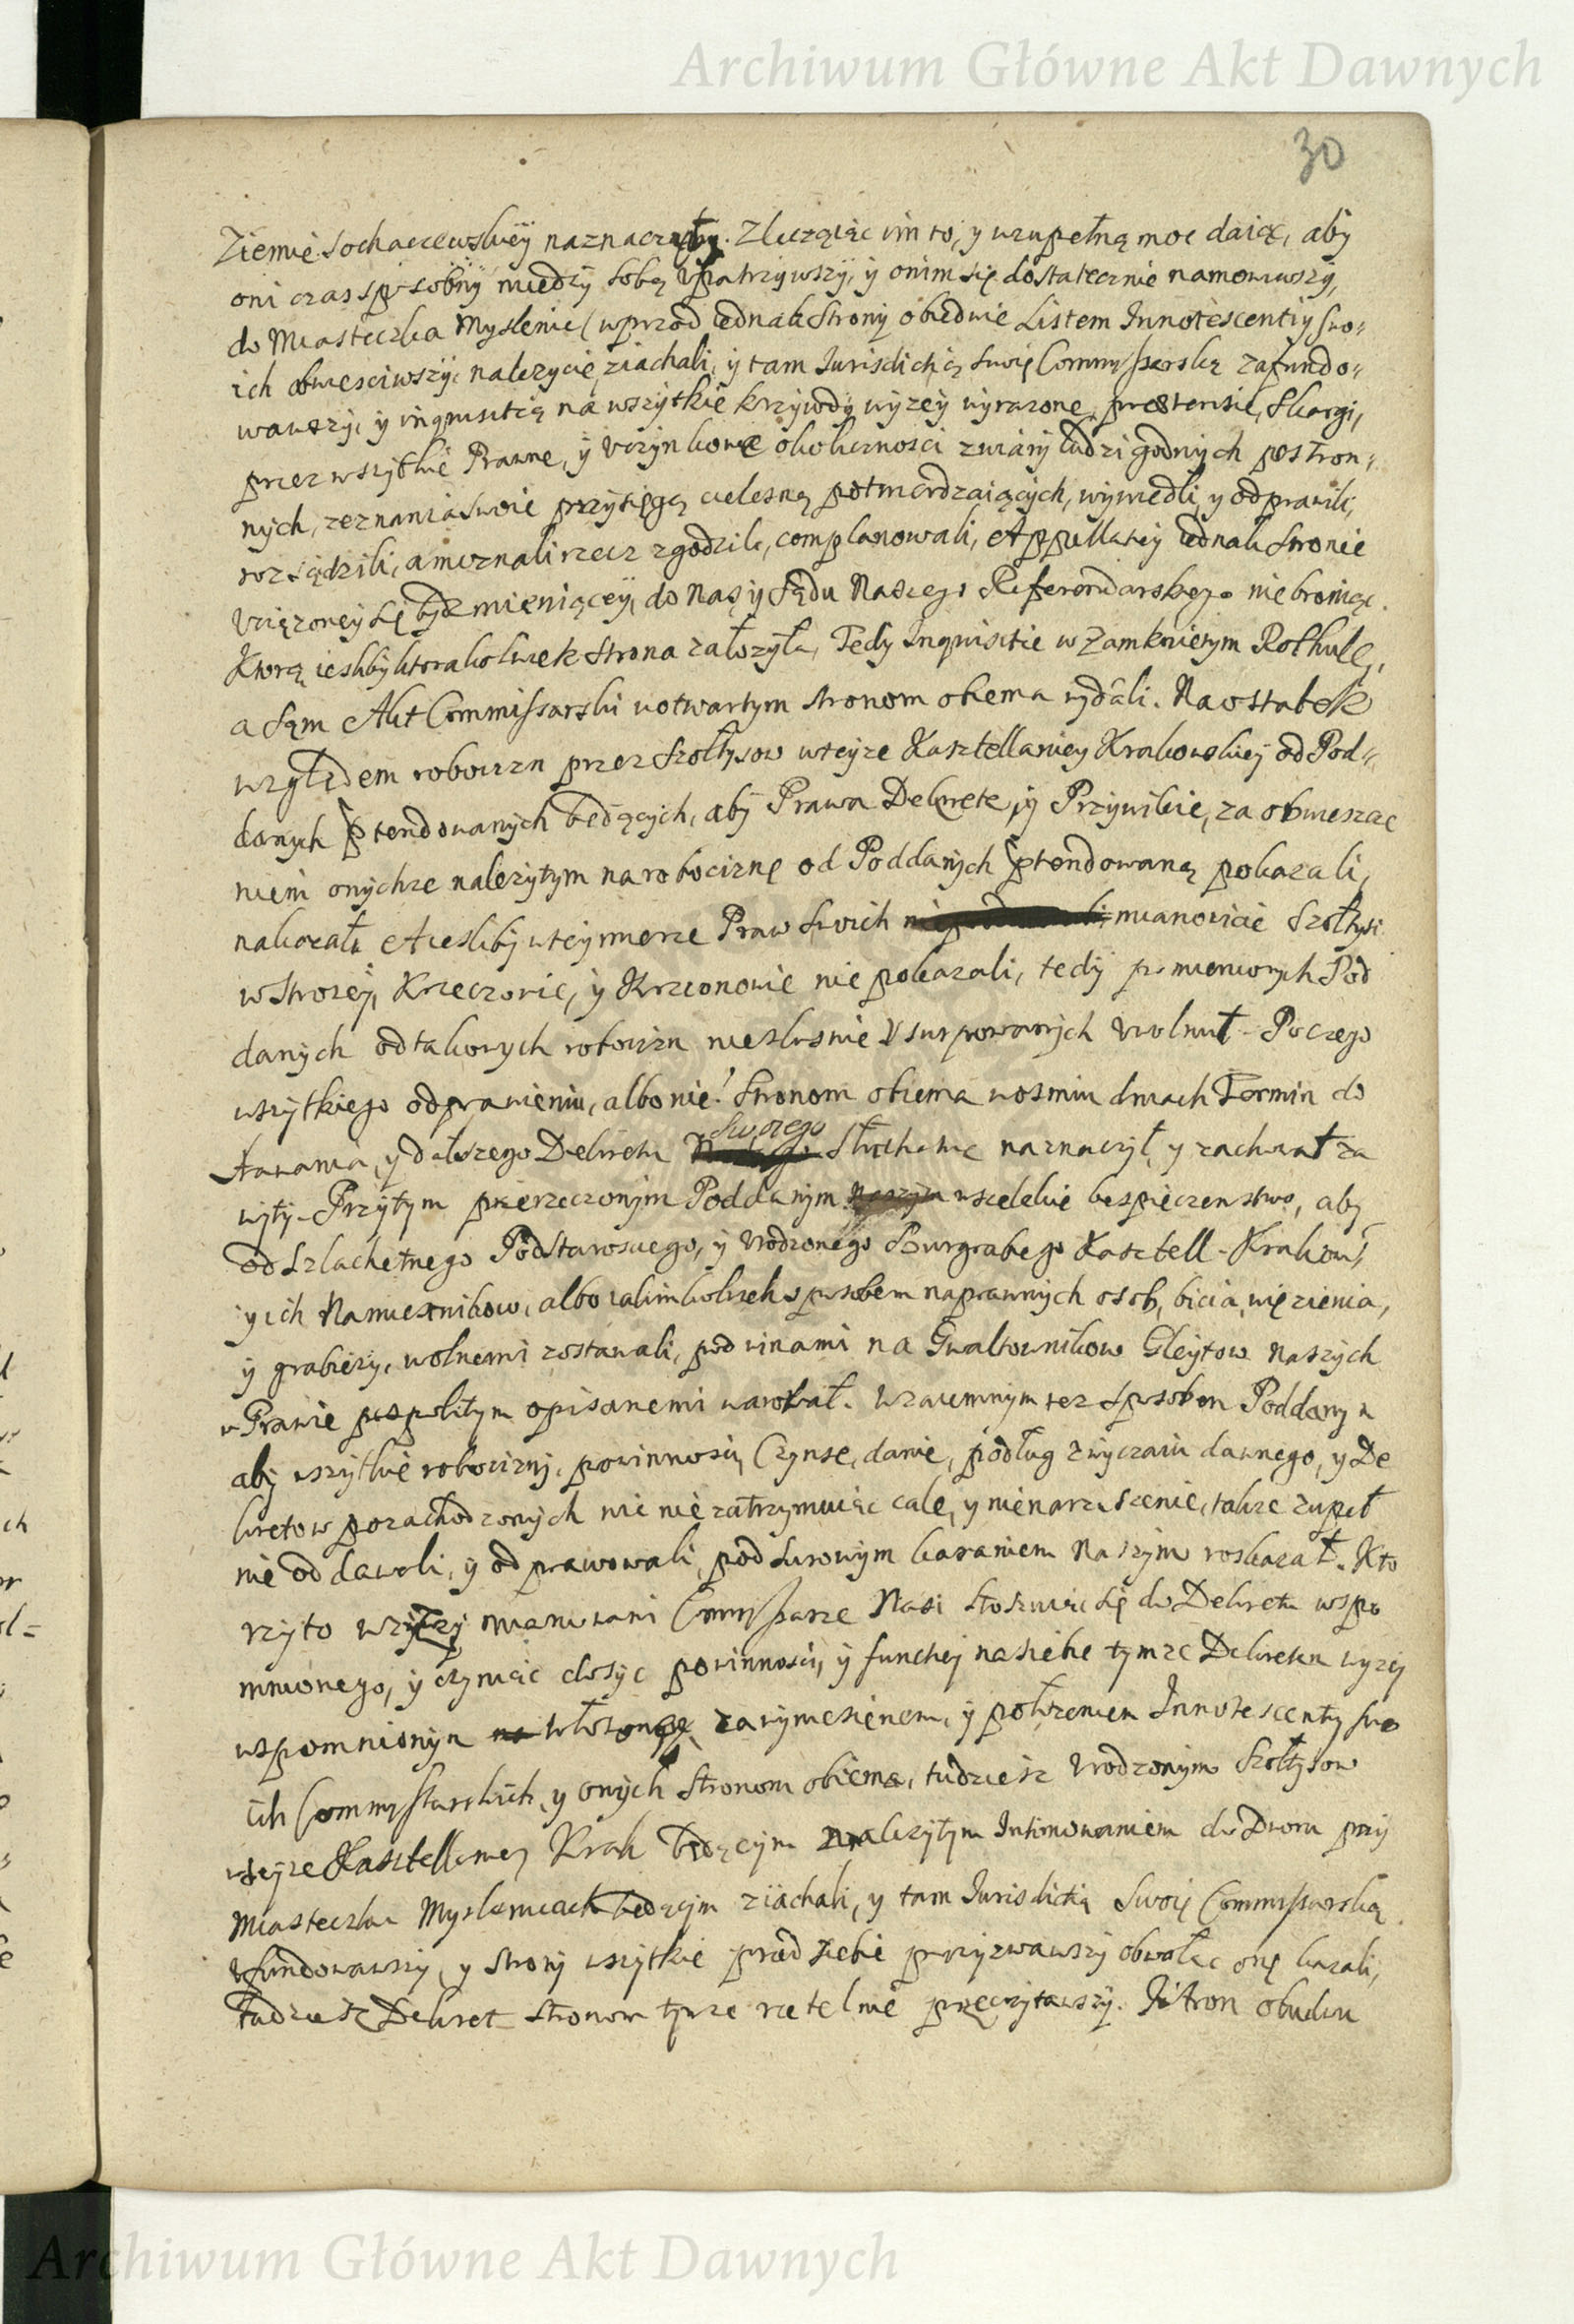 Archiwum Główne Akt Dawnych
30
Ziemie Sochaczewskiey naznaczył. Zlecaiąc im to, y wzupełną moc daiąc, aby
oni czas sposobny między sobą upatrzywszy, y onim się dostatecznie namowiwszy,
do Miasteczka Myslenic (wprzod iednak Strony obiedwie Listem Innotescentiy swo=
ich obwiesciwszy, nalezycie ziachali, y tam Jurisdictią swoię Commissarską zafundo=
wawszy, y inquisitią na wszytkie krzywdy wyzey wyrazone, pretensie, Skargi,
przez wszytkie Prawne, y uczynkowe okolicznosci zwiary ludzi godnych postron=
nych, zeznania swoie przysięgą cielesną potwierdzaiących, wywiedli, y odprawili,
rozsądzili, a mieznali rzecz zgodzili, complanowali, Appellatiy iednak Stronie
Uciązoney się bydz mieniącey, do Nas y Sądu Naszego Referendarskiego nie broniąc.
Ktorą iesliby ktorakolwiek Strona załozyła, Tedy Inquisitie w Zamknietym Rothule,
a sąm Akt Commissarski w otwartym stronom obiema wydali. Na ostatek
względem robocizn przez Szołtysow wteyze Kasztellaniey Krakowskiey od Pod=
danych ptendowanych będących, aby Prawa Dekreta, y Przywileie, za obwieszcze
niem onychze nalezytym na robociznę od Poddanych ptendowaną pokazali,
nakazał. A iesliby wteymierze Praw swoich mianowicie Szołtysi
w Strozey, Krzeczowie, y Krzczonowie nie pokazali, tedy pomienionych Pod
danych od takowych robocizn nieslusnie Usurpowanych uwolnił. Po czego
wszytkiego odprawieniu, albo nie! Stronom obiema wosmiu dniach Termin do
Stawania, y dalszego Dekretu swoiego Słuchania naznaczył, y zachował za
wity. Przytym przerzeczonym Poddanym naszym wszelakie bespieczenstwo, aby
od Szlachetnego Podstarosciego, y Urodzonego Burgrabiego Kasztell. Krakow:
y ich Namiestnikow, albo iakimkolwiek sposobem naprawnych osob, bicia, więzienia,
y grabiezy, wolnemi zostawali, pod winami na Gwałtownikow Gleytow naszych
w Prawie pospolitym opisanemi warował. Wzaiemnym tez sposobem Poddanym
aby wszytkie robocizny, powinnosci, Czynse, danie, podług zwyczaiu dawnego, y De
kretow pozachodzonych nic nie zatrzymuiąc cale, y nienaruszenie, takze zupeł
nie oddawali, y odprawowali, pod surowym karaniem naszym roskazał. Kto
rzyto wyzey mianowani Commissarze Nasi stosuiąc się do Dekretu wspo
mnionego, y czyniąc dosyc powinnosci, y funchey na siebie tymze Dekretem wyzey
wspomnionym włozoney, za wyniesieniem, y połozeniem Innotescenty swo
ich Commissarskich, y onych Stronom obiema, tudziesz Urodzonym Szołtysow
wteyze Kasztellaniey Krak będącym nalezytym Intimowaniem do Dworu przy
Miasteczku Myslenicach będącym ziachali, y tam Jurisdictią swoię Commissarską
ufundowawszy, y Strony wszytkie przed siebie przyzwawszy obwołac onę kazali,
tudziesz Dekret stronom tymze rzetelnie przeczytawszy. J Stron obudwu
Archiwum Główne Akt Dawnych